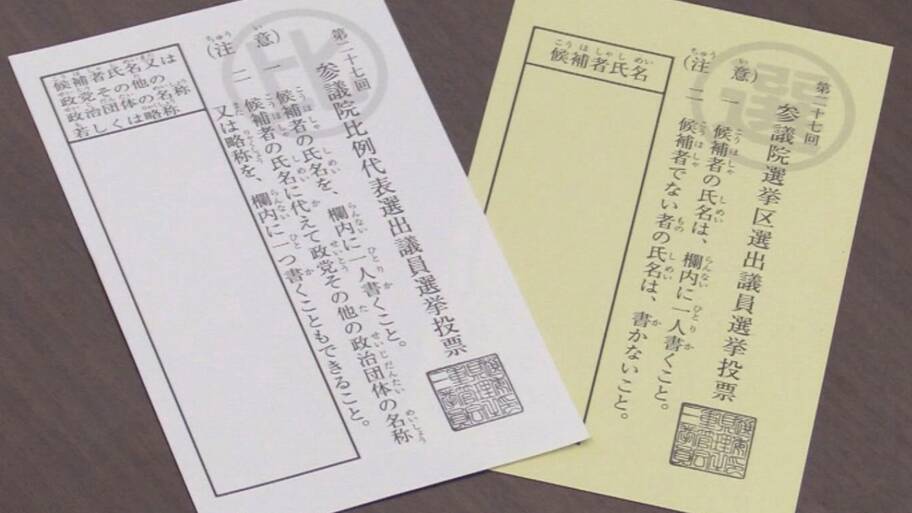 第二十七回
参議院比例代表選出議員選挙投票
(注意)
一 候補者の氏名を、欄内に一人書くこと。
二 候補者の氏名に代えて政党その他の政治団体の名称
又は略称を、欄内に一つ書くこともできること。
候補者氏名又は
政党その他の
政治団体の名称
若しくは略称
第二十七回
参議院選挙区選出議員選挙投票
(注意)
一 候補者の氏名は、欄内に一人書くこと。
二 候補者でない者の氏名は、書かないこと。
候補者氏名
選